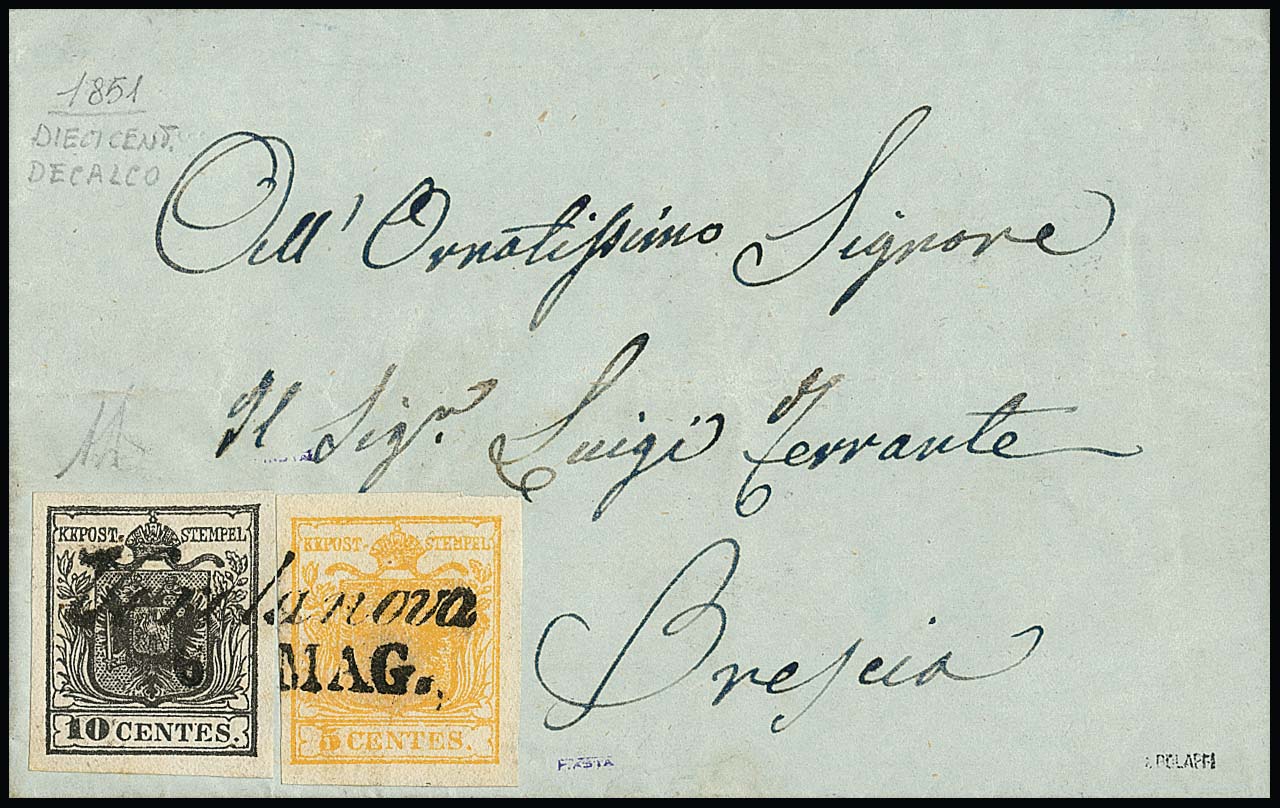 1851
DIECI CENT.
DECALCO
All' Ornatissimo Signore
Il Sigr. Luigi Ferrante
Brescia
KKPOST-STEMPEL
10 CENTES.
KKPOST-STEMPEL
5 CENTES.
6 MAG.